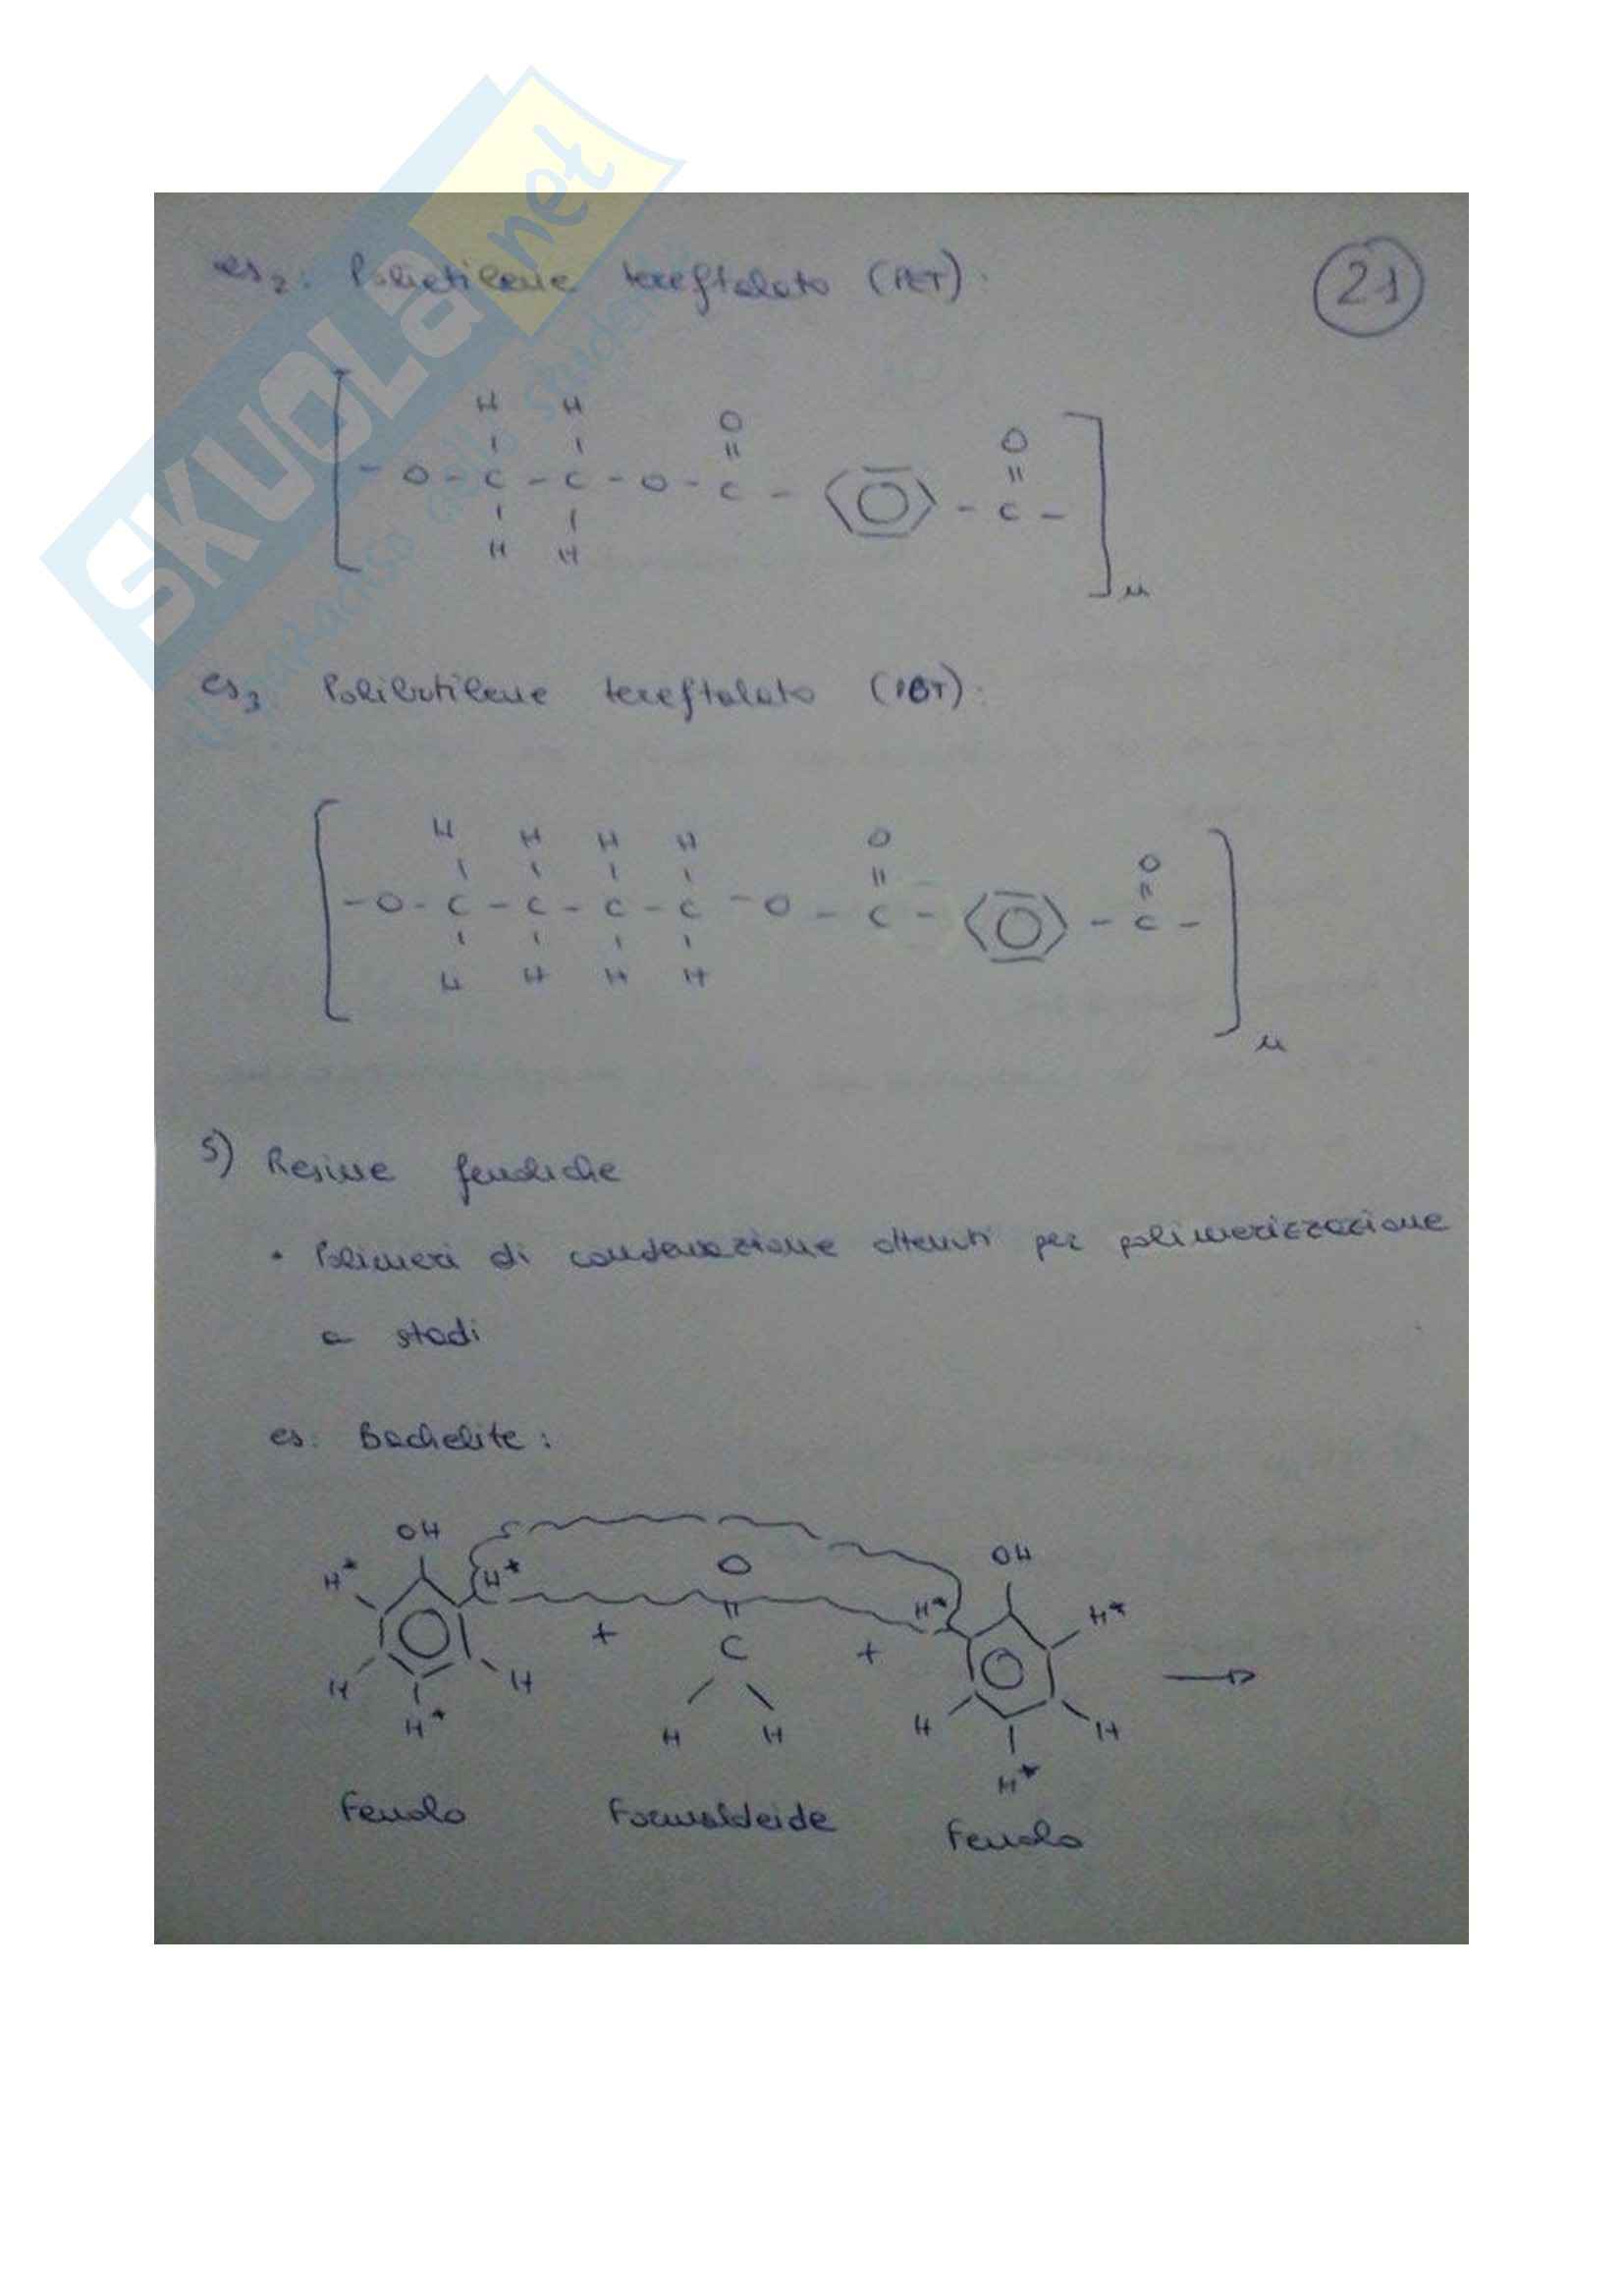 SKUOLA.net
es2: Polietilene tereftalato (PET): 21
H H O O
- O - C - C - O - C - - C -
H H
n
es3 Polibutilene tereftalato (PBT):
H H H H O O
- O - C - C - C - C - O - C - - C -
H H H H
n
5) Resine fenoliche
• Polimeri di condensazione ottenuti per polimerizzazione
a stadi
es: Bachelite:
OH O OH
H* H* H* H*
+ C +
H H H H
H* H H H*
Fenolo Formaldeide Fenolo